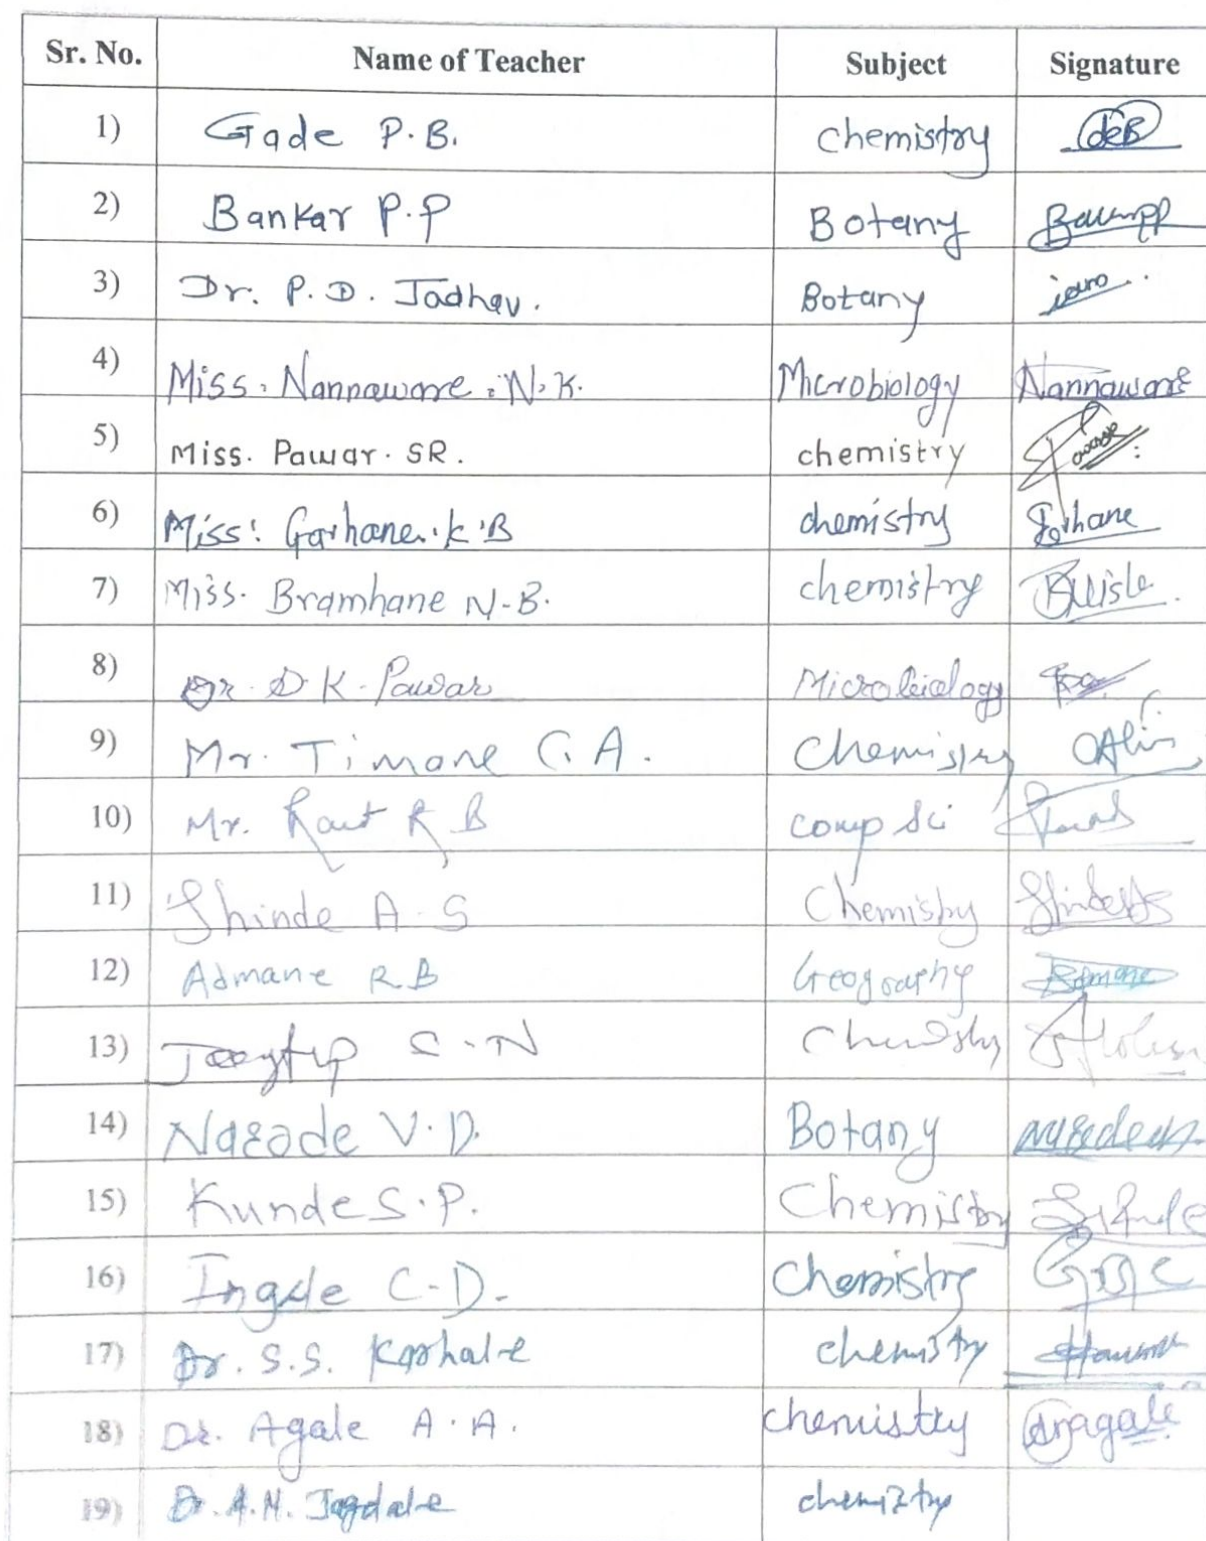 Sr. No. Name of Teacher Subject Signature
1) Gade P.B. chemistry
2) Bankar P.P Botany
3) Dr. P.D. Jadhav. Botany
4) Miss. Nannaware. N.K. Microbiology Nannaware
5) Miss. Pawar. SR. chemistry
6) Miss. Garhane. K.B chemistry
7) Miss. Bramhane N-B. chemistry
8) Dr. D K. Pawar Microbiology
9) Mr. Timane G.A. Chemistry
10) Mr. Raut R B comp Sci
11) Shinde A-S Chemistry
12) Admane R B Geography
13) S.N Chemistry
14) Nagode V.D. Botany
15) Kunde S.P. Chemistry
16) Ingale C-D. Chemistry
17) Dr. S.S. Karhale chemistry
18) Dr. Agale A.A. chemistry
19) Dr. A.N. Jagdale chemiztry